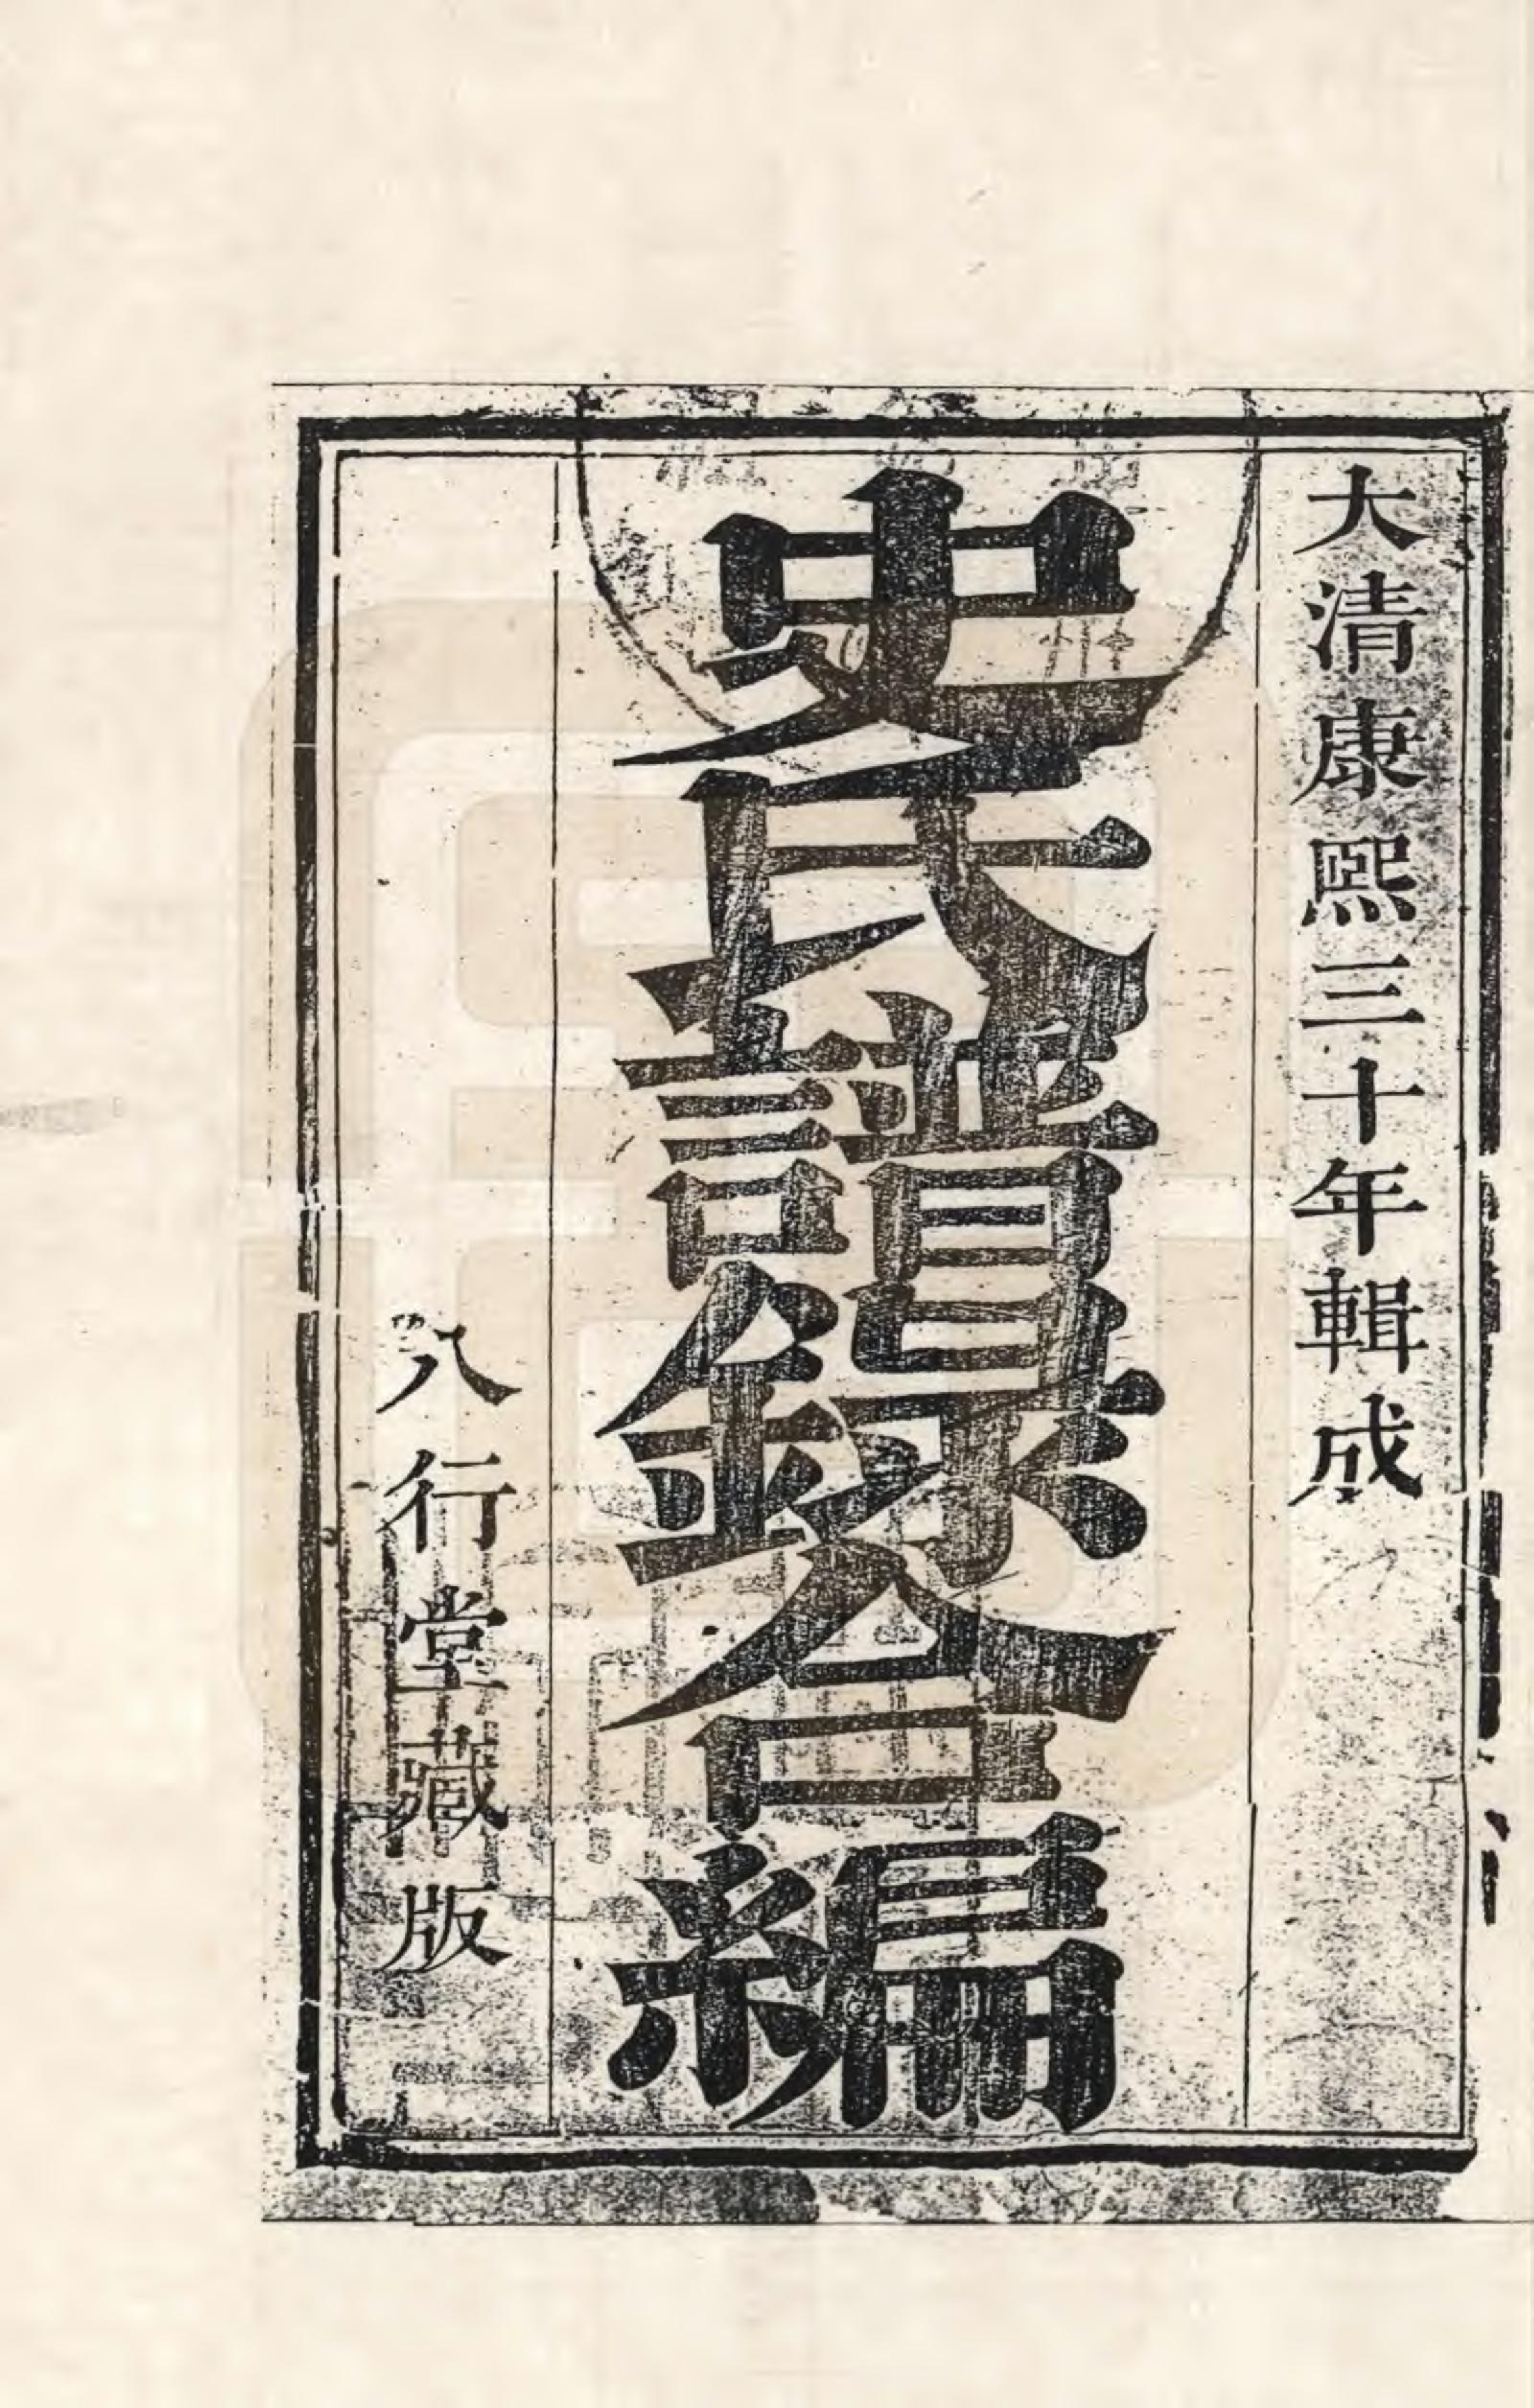 大清康熙三十年輯成
史氏譜錄合編
八行堂藏版